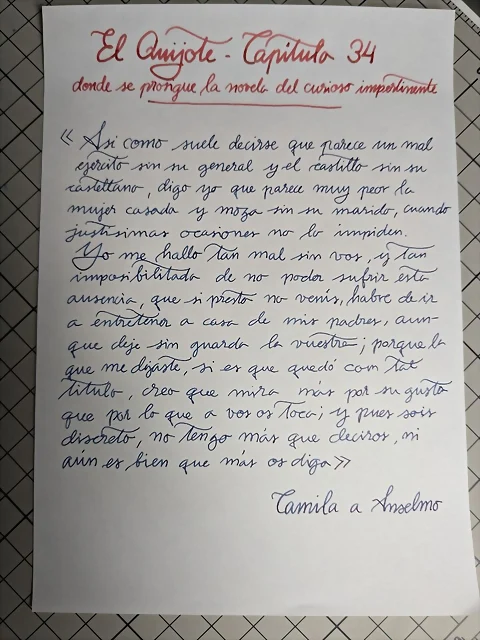 El Quijote - Capítulo 34
donde se prosigue la novela del curioso impertinente
« Así como suele decirse que parece un mal
ejército sin su general y el castillo sin su
castellano, digo yo que parece muy peor la
mujer casada y moza sin su marido, cuando
justísimas ocasiones no lo impiden.
Yo me hallo tan mal sin vos, y tan
imposibilitada de no poder sufrir esta
ausencia, que si presto no venís, habré de ir
a entretener a casa de mis padres, aun-
que deje sin guarda la vuestra; porque la
que me dejaste, si es que quedó con tal
título, creo que mira más por su gusto
que por lo que a vos os toca; y pues sois
discreto, no tengo más que deciros, ni
aún es bien que más os diga »
Camila a Anselmo